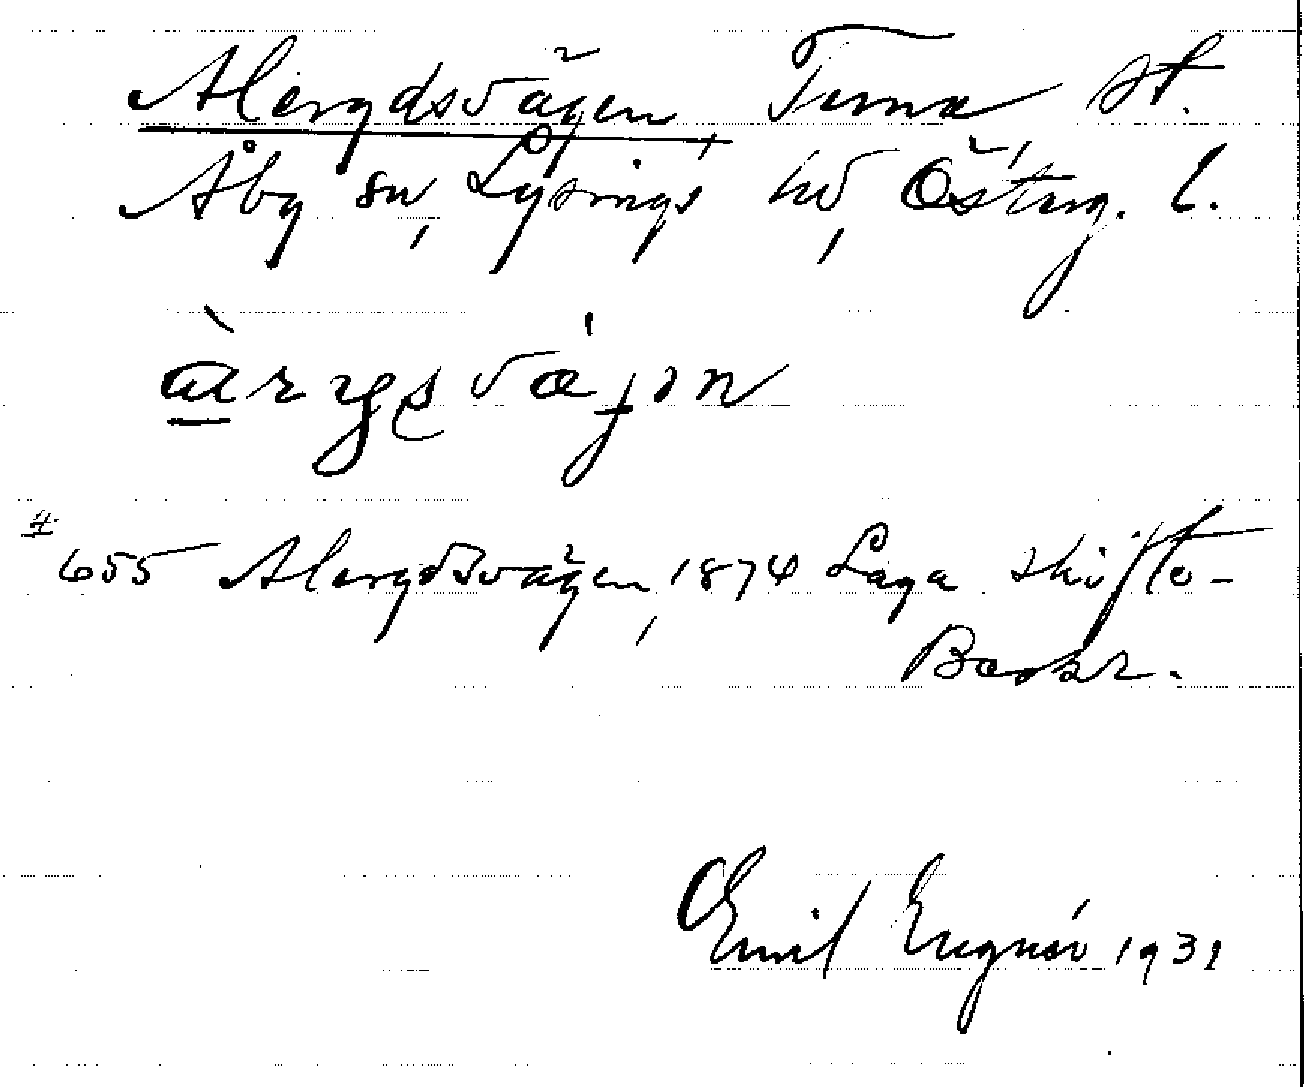 Alergdsvägen, Tema st.
Åby sn, Lysings hd, Österg. l.
àrgsvæ̀jən
#
655 Alergdsvägen, 1874 Laga skifte-
Beskr.
Emil Eugnér 1931